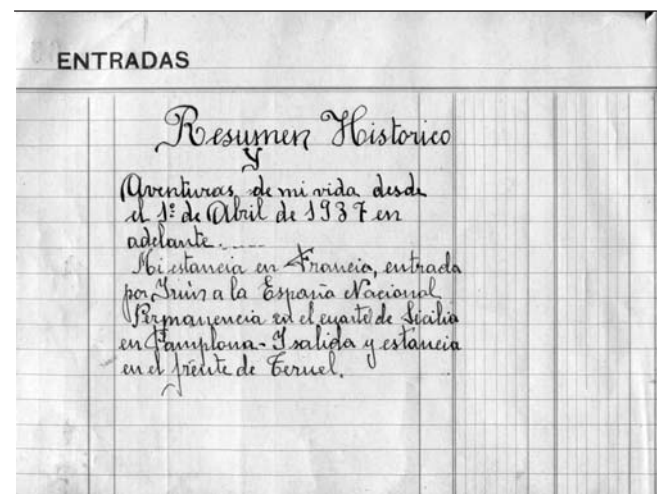 ENTRADAS
Resumen Historico
y
Aventuras de mi vida desde
el 1º de Abril de 1937 en
adelante.....
Mi estancia en Francia, entrada
por Irún a la España Nacional
Permanencia en el cuartel de Sicilia
en Pamplona - Y salida y estancia
en el frente de Teruel.